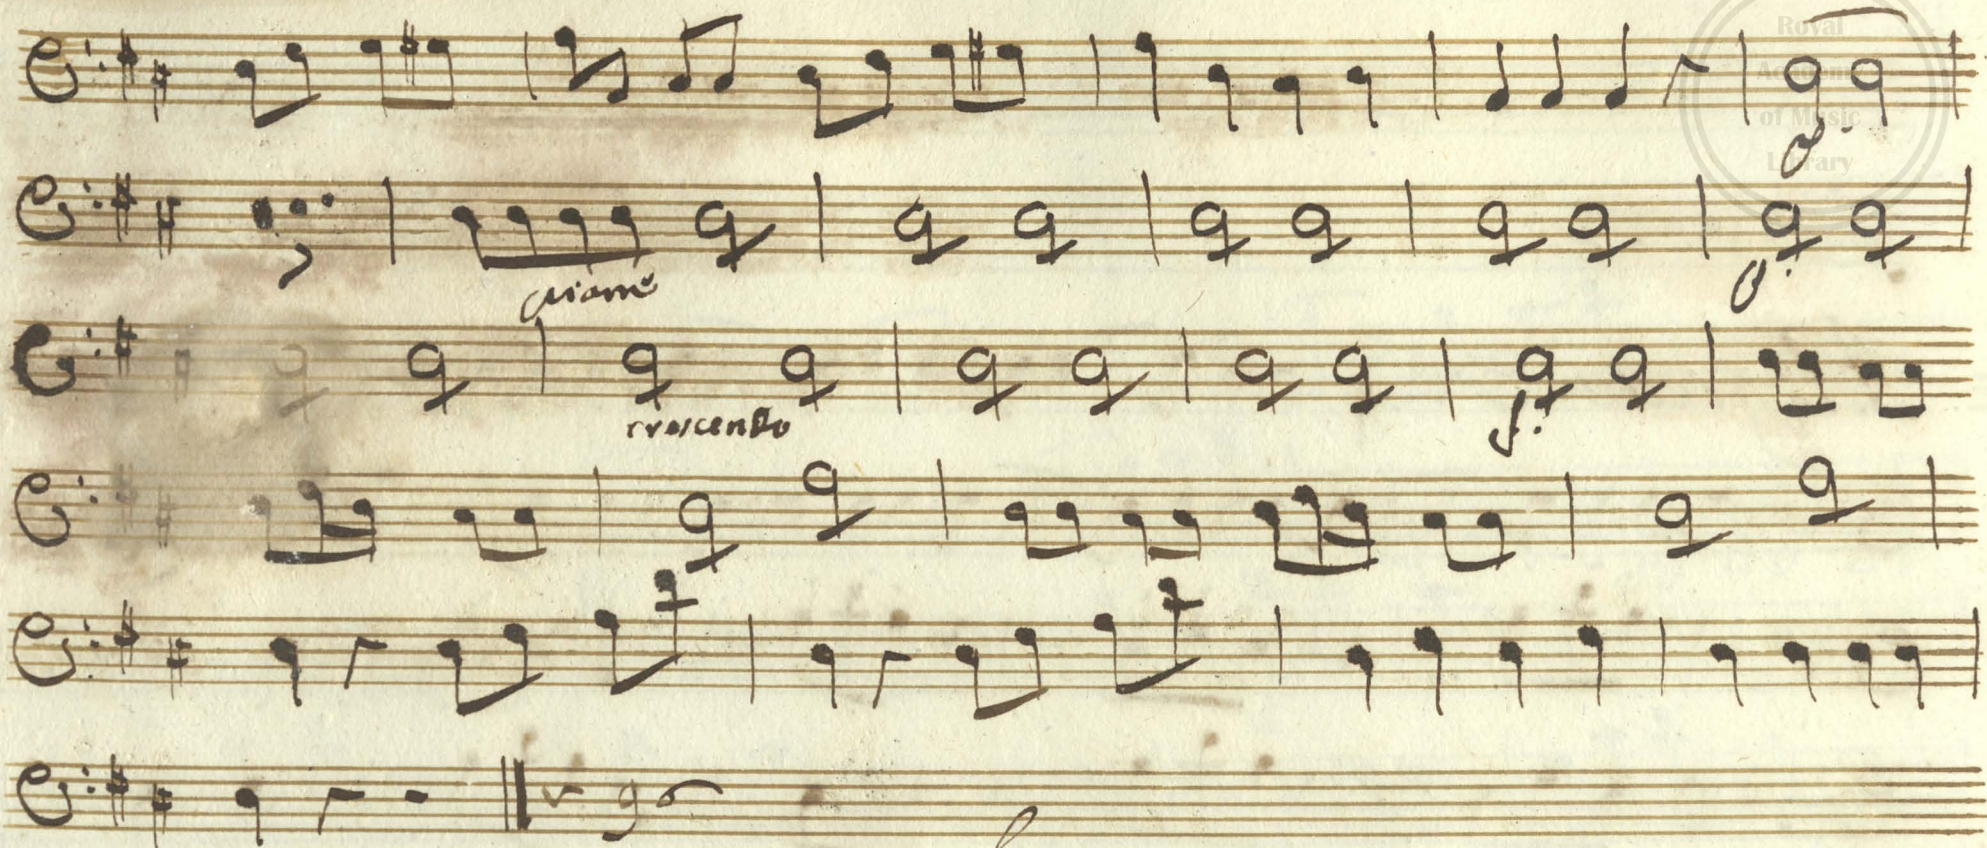 Royal
Academy
of Music
Library
p.
piano
p.
crescendo
f.